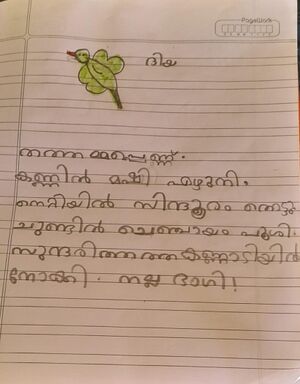 PageWork
ദിയ
തത്തമ്മപ്പെണ്ണ്.
കണ്ണിൽ മഷി എഴുതി.
നെറ്റിയിൽ സിന്ദൂരം തൊട്ടു
ചുണ്ടിൽ ചെഞ്ചായം പൂശി.
സുന്ദരിതത്ത കണ്ണാടിയിൽ
നോക്കി. നല്ല ഭംഗി!